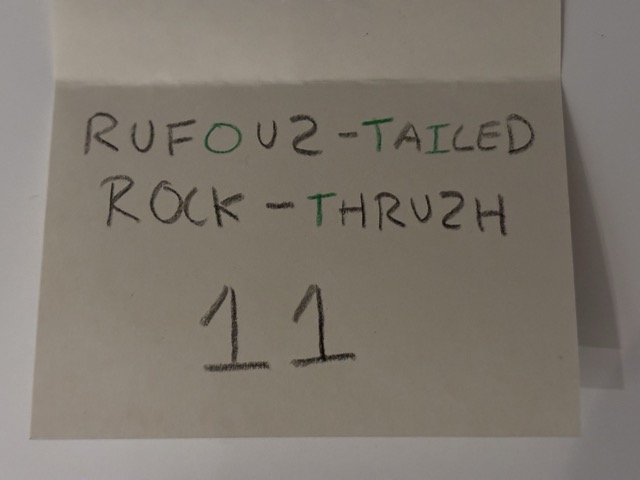 RUFOUS-TAILED
ROCK-THRUSH
11